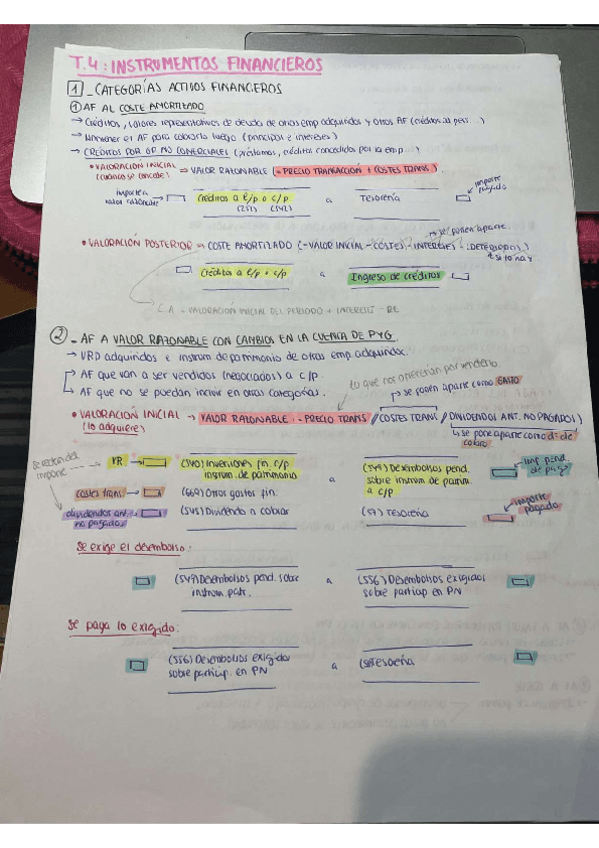 T.4: INSTRUMENTOS FINANCIEROS
1_CATEGORÍAS ACTIVOS FINANCIEROS
① AF AL COSTE AMORTIZADO
→ Créditos, valores representativos de deuda de otras emp adquiridos y otros AF (créditos al pers...)
→ Mantener el AF para cobrarlo luego (principal e intereses)
→ CRÉDITOS POR OP NO COMERCIALES (préstamos, créditos concedidos por la emp...)
• VALORACIÓN INICIAL ⇒ VALOR RAZONABLE (= PRECIO TRANSACCIÓN + COSTES TRANS)
(cuando se concede)
importe a valor razonable
Créditos a l/p o c/p a Tesorería
(252) (542)
importe pagado
se ponen aparte
• VALORACIÓN POSTERIOR → COSTE AMORTIZADO (=VALOR INICIAL - COSTES - INTERESES - DETERIOROS)
si lo hay
Créditos a l/p o c/p a Ingreso de créditos
C.A = VALORACIÓN INICIAL DEL PERIODO + INTERESES - RE
② - AF A VALOR RAZONABLE CON CAMBIOS EN LA CUENTA DE PYG.
→ VRD adquiridos e instrum de patrimonio de otras emp adquiridos.
→ AF que van a ser vendidos (negociados) a c/p
→ AF que no se puedan incluir en otras categorías.
Lo que nos ofrecerían por venderlo
se ponen aparte como GASTO
• VALORACIÓN INICIAL → VALOR RAZONABLE: = PRECIO TRANS / COSTES TRANS / DIVIDENDOS ANT. NO PAGADOS)
(lo adquiere)
se pone aparte como dº de cobro
importe
VR
(540) Inversiones fin. c/p instrum. de patrimonio a (549) Desembolsos pend. sobre instrum de patrim. a c/p
imp pend. de pago
costes trans.
(669) Otros gastos fin.
dividendos ant. no pagados
(545) Dividendo a cobrar (57) Tesorería
importe pagado
Se exige el desembolso:
(549) Desembolsos pend. sobre instrum. patr. a (556) Desembolsos exigidos sobre particip en PN
Se paga lo exigido:
(556) Desembolsos exigidos sobre particip. en PN a Tesorería